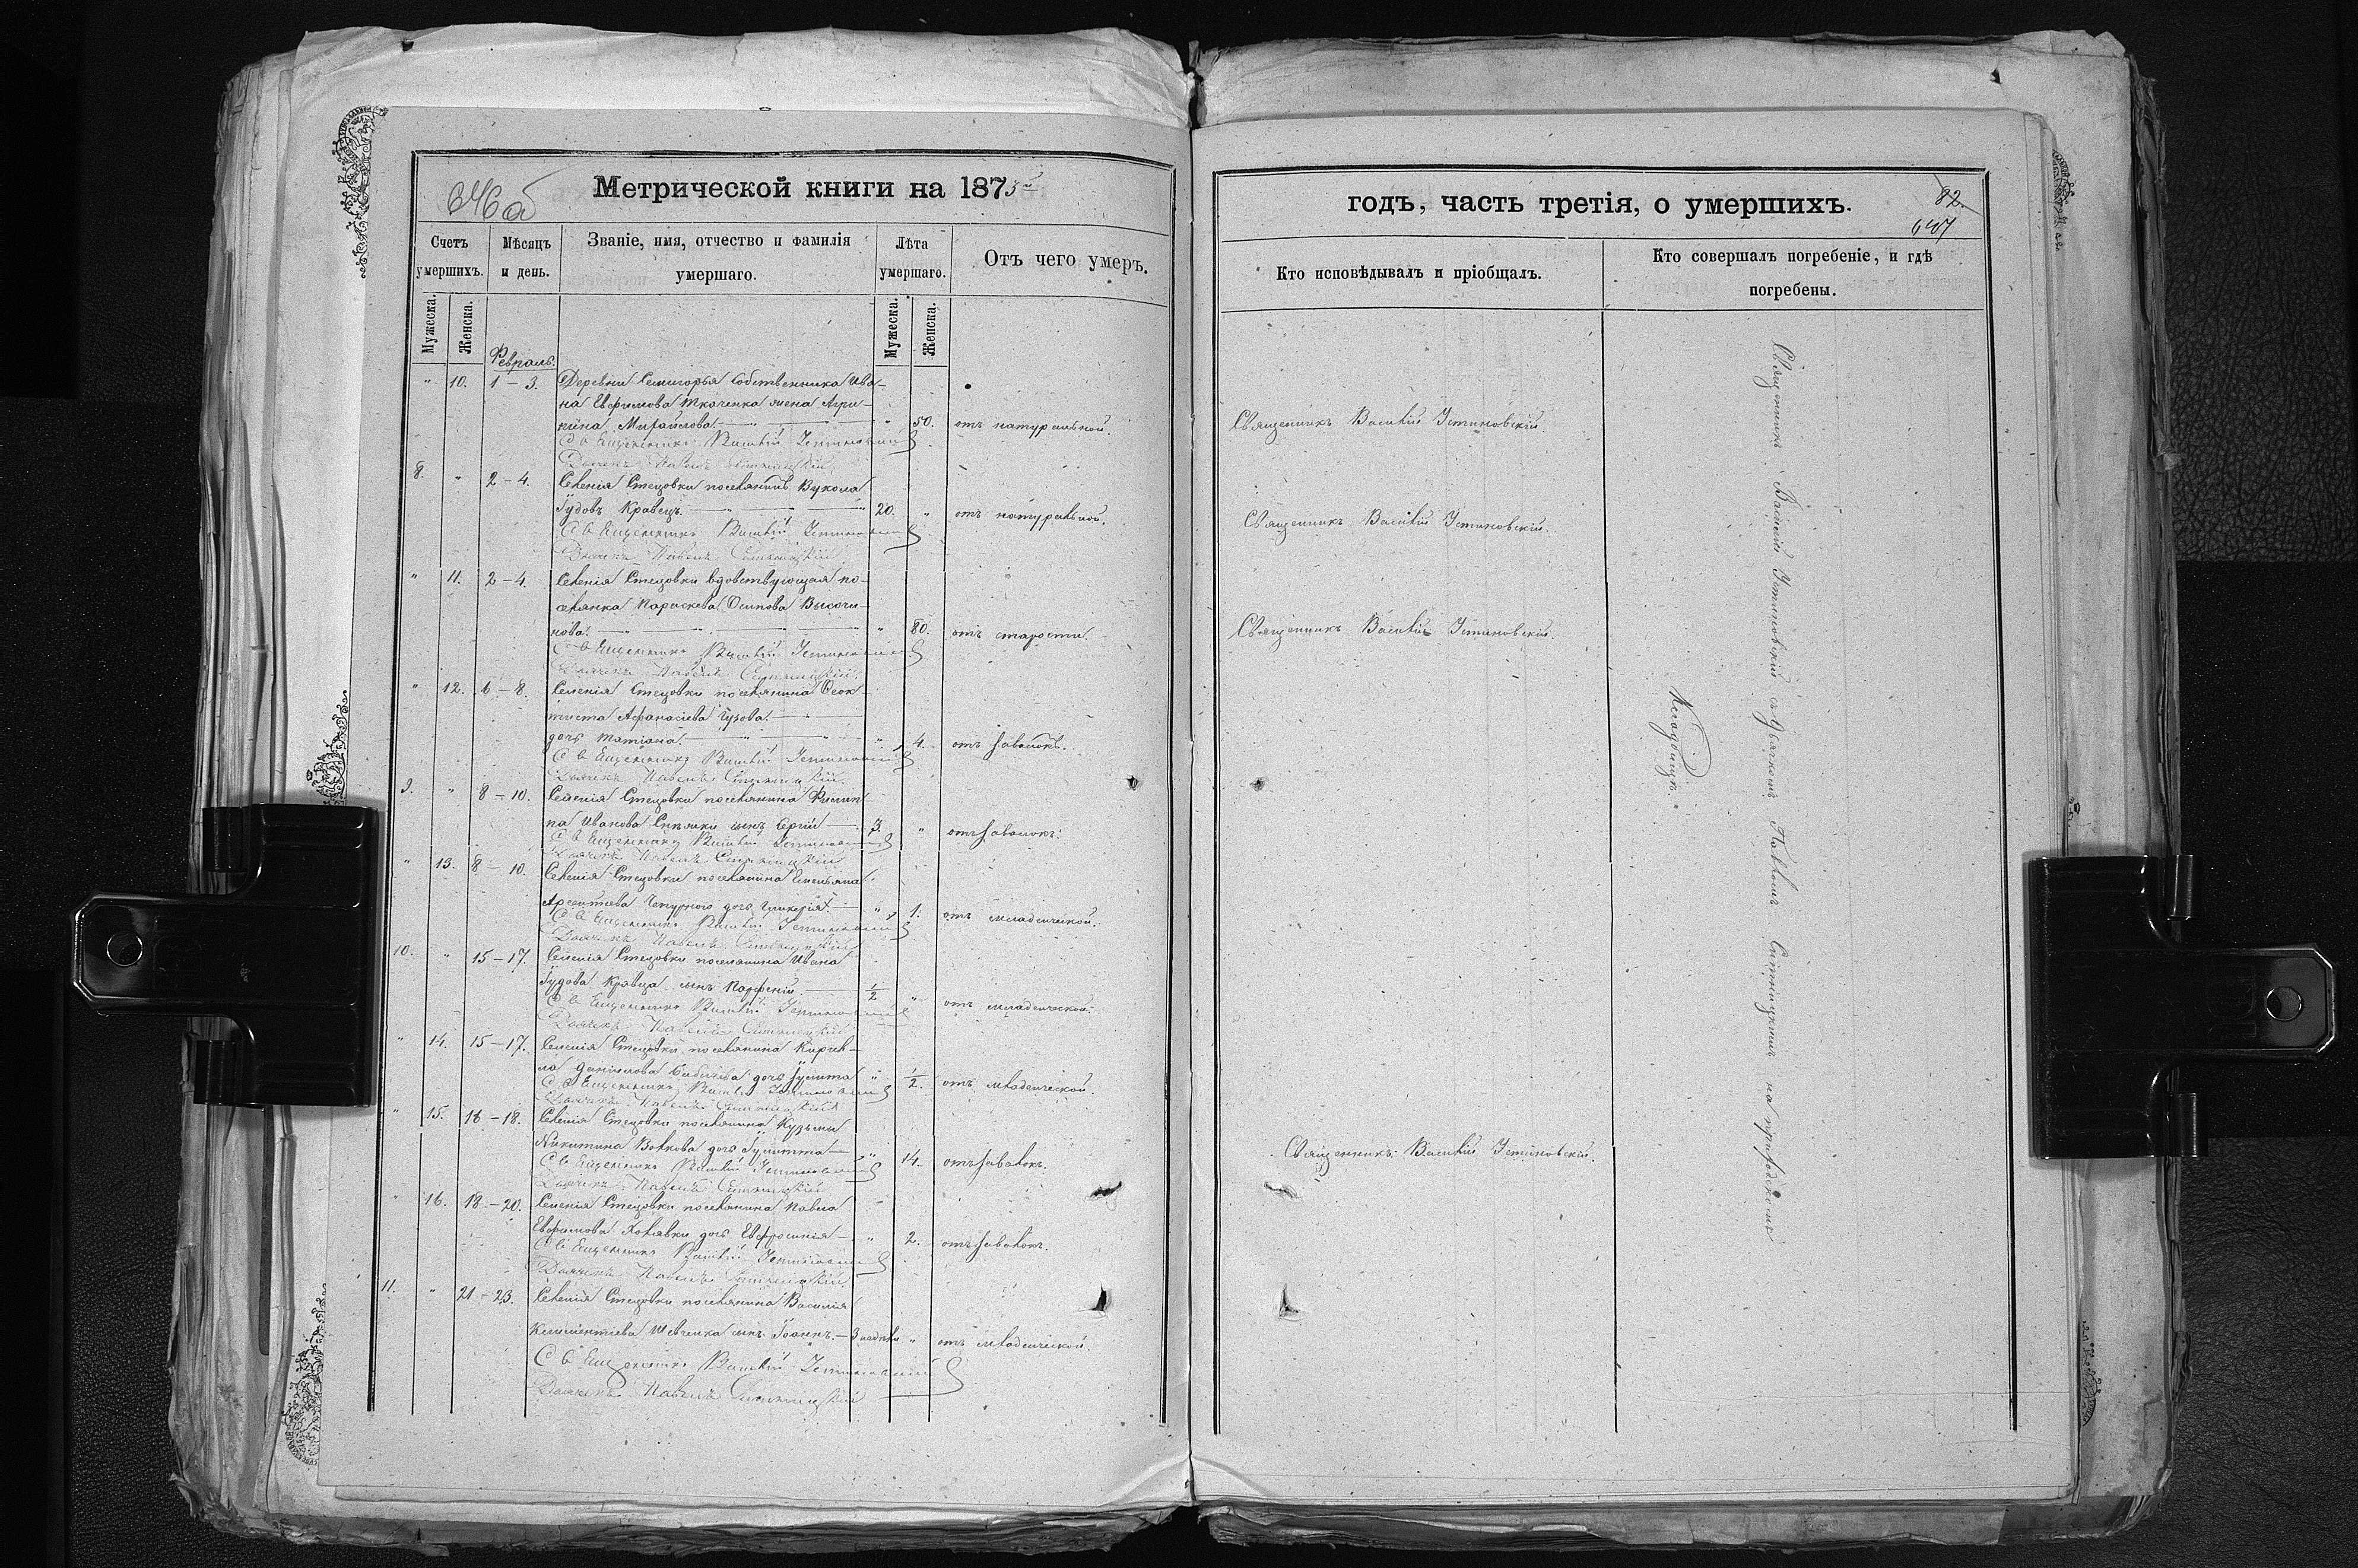 646 об
Метрической книги на 1875
Счетъ умершихъ.
Мѣсяцъ и день.
Званіе, имя, отчество и фамилія умершаго.
Лѣта умершаго.
Отъ чего умеръ.
Мужеска.
Женска.
Мужеска.
Женска.
Февраль.
" 10. 1 – 3. Деревни Семигорья собственника Ива-
на Евфимова Ткаченка жена Агри-
пина Михайлова. " 50. отъ натуральной.
Священникъ Василій Устиновскій
Дьячекъ Павелъ Ситницкій
8. " 2 – 4. Селенія Стецовки поселянинъ Вукола
Гудовъ Кравецъ. 20. " отъ натуральной.
Священникъ Василій Устиновскій
Дьячекъ Павелъ Ситницкій
" 11. 2 – 4. Селенія Стецовки вдовствующая по-
селянка Параскева Осипова Высочи-
нова. " 80. отъ старости.
Священникъ Василій Устиновскій
Дьячекъ Павелъ Ситницкій
" 12. 6 – 8. Селенія Стецовки поселянина Феок-
тиста Афанасіева
дочь Татіана. " 4. отъ завалокъ.
Священникъ Василій Устиновскій
Дьячекъ Павелъ Ситницкій
9. " 8 – 10. Селенія Стецовки поселянина Филип-
па Иванова сынъ Сергій 3. " отъ завалокъ.
Священникъ Василій Устиновскій
Дьячекъ Павелъ Ситницкій
" 13. 8 – 10. Селенія Стецовки поселянина Емельяна
Арсентіева Чепурного дочь Гликерія. " 1. отъ младенческой.
Священникъ Василій Устиновскій
Дьячекъ Павелъ Ситницкій
10. " 15 – 17. Селенія Стецовки поселянина Ивана
Гудова Кравца сынъ Парфеній 1/2 " отъ младенческой.
Священникъ Василій Устиновскій
Дьячекъ Павелъ Ситницкій
" 14. 15 – 17. Селенія Стецовки поселянина Кирил-
ла Даніилова дочь Іулита " 1/2. отъ младенческой.
Священникъ Василій Устиновскій
Дьячекъ Павелъ Ситницкій
" 15. 16 – 18. Селенія Стецовки поселянина Кузьмы
Никитина Волкова дочь Іулитта " 14. отъ завалокъ.
Священникъ Василій Устиновскій
Дьячекъ Павелъ Ситницкій
" 16. 18 – 20. Селенія Стецовки поселянина Павла
Евфимова Холявки дочь Евфросинія " 2. отъ завалокъ.
Священникъ Василій Устиновскій
Дьячекъ Павелъ Ситницкій
11. " 21 – 23. Селенія Стецовки поселянина Василія
Климентіева Шевченка сынъ Іоаннъ. 3 недѣли " отъ младенческой.
Священникъ Василій Устиновскій
Дьячекъ Павелъ Ситницкій
годъ, часть третія, о умершихъ.
82.
647
Кто исповѣдывалъ и пріобщалъ.
Кто совершалъ погребеніе, и гдѣ погребены.
Священникъ Василій Устиновскій.
Священникъ Василій Устиновскій.
Священникъ Василій Устиновскій.
Священникъ Василій Устиновскій.
Священникъ Василій Устиновскій съ дьячкомъ Павломъ Ситницкимъ на приходскомъ
Кладбищѣ.